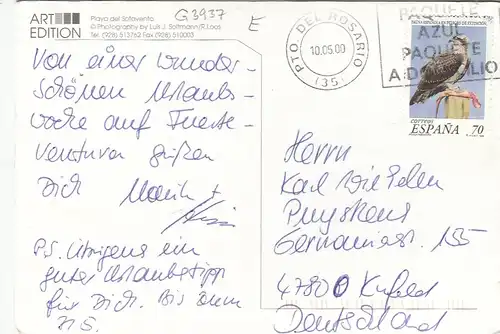 ART EDITION
Playa del Sotavento
© Photography by Luis J. Soltmann/R.Loos
Tel. (928) 513762 Fax (928) 510003
G 3937
E
PTO DEL ROSARIO
10.05.00
(35)
PAQUETE
AZUL
PAQUETE
A DOMICILIO
correos
ESPAÑA 70
Von einer wunder-
schönen Urlaubs-
woche auf Fuerte-
ventura grüßen
Dich
P.S. Übrigens ein
guter Urlaubstipp
für Dich. Bis zum
Herrn
Karl Wilhelm
Puyskens
Germaniastr. 155
47800 Krefeld
Deutschland